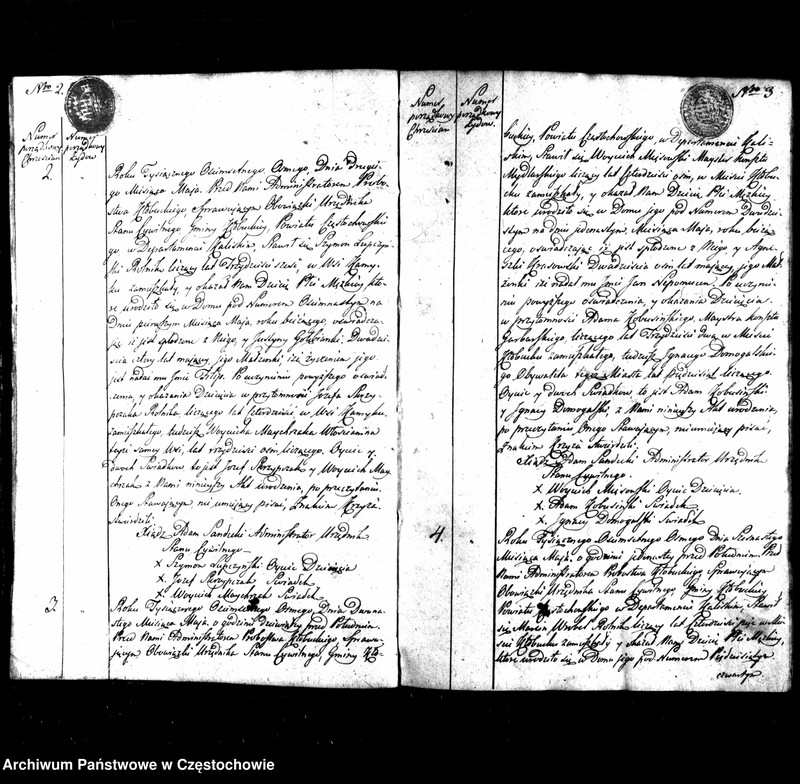 Nro 2.
Numer porządkowy Chrześcian
Numer porządkowy Żydow.
2.
Roku Tysiącznego Ośmsetnego, Osmego, Dnia Drugie-
go Miesiąca Maja. Przed Nami Administratorem Probo-
stwa Kłobuckiego, Sprawującym Obowiązki Urzędnika
Stanu Cywilnego Gminy Kłobuckiey, Powiatu Częstochowskie-
go w Departamencie Kaliskim Stawił się Szymon Łupczyń-
ski Rolnik liczący lat Trzydzieści sześć, w Wsi Kamy-
ku zamieszkały, y okazał Nam Dziecię Płci Męzkiey, kto-
re urodziło się w Domu pod Numerem Osmnastym na
Dniu pierwszym Miesiąca Maja, roku bieżącego, oświadcza-
jąc iż jest spłodzone z Niego, y Justyny Golibianki, Dwadzie-
ścia cztery lat mającey jego Małżonki, iż życzeniem jego
jest nadać mu Jmie Filip. Po uczynieniu powyższego oświad-
czenia, y okazania Dziecięcia w przytomności Jozefa Skrzy-
pczaka Rolnika, liczącego lat Czterdzieści w Wsi Kamyku
zamieszkałego, tudzież Woyciecha Maychrzaka Włościanina
teyże samey Wsi, lat trzydzieści osm liczącego. Oyciec y
dwoch Swiadkow to jest Jozef Skrzypczak y Woyciech May-
chrzak z Nami ninieyszy Akt urodzenia, po przeczytaniu
Onego Stawającym, nieumiejący pisać, Znakiem Krzyża
stwierdzili.
Xiądz Adam Sandecki Administrator Urzędnik
Stanu Cywilnego
X Szymon Łupczyński Oyciec Dziecięcia
X Jozef Skrzypczak Swiadek
X Woyciech Maychrzak Swiadek
3
Roku Tysiącznego Ośmsetnego Osmego, Dnia Dwuna-
stego Miesiąca Maja o godzinie dziewiątey przed Południem.
Przed Nami Administratorem Probostwa Kłobuckiego Sprawu-
jącym Obowiązki Urzędnika Stanu Cywilnego, Gminy Kło-
Nro 3
Numer porządkowy Chrześcian
Numer porządkowy Żydow.
buckiey, Powiatu Częstochowskiego, w Departamencie Kali-
skim, Stawił się Woyciech Majster konsztu
liczący lat Czterdzieści osm, w Mieście Kłobu-
cku zamieszkały, y okazał Nam Dziecię Płci Męzkiey,
ktore urodziło się w Domu jego pod Numerem Dwudzie-
stym na dniu Miesiąca Maja, roku bieżą-
cego, oświadczając iż jest spłodzone z Niego y Agne-
szki Dwadzieścia osm lat mającey, jego Mał-
żonki iż nadał mu Jmie Jan Nepomucen. Po uczynie-
niu powyższego oświadczenia, y okazania Dziecięcia
w przytomności Adama Kobusińskiego, Maystra konsztu
Garbarskiego liczącego lat Trzydzieści Dwa w Mieście
Kłobucku zamieszkałego, tudzież Jgnacego Domogalskie-
go Obywatela tegoż Miasta lat Pięćdziesiąt liczącego.
Oyciec y dwoch Swiadkow, to jest Adam Kobusiński
y Jgnacy Domogalski, z Nami ninieyszy Akt urodzenia,
po przeczytaniu Onego Stawającym, nieumiejący pisać,
Znakiem Krzyża stwierdzili.
Xiądz Adam Sandecki Administrator, Urzędnik
Stanu Cywilnego
X Woyciech Oyciec Dziecięcia.
X Adam Kobusiński Swiadek
X. Jgnacy Domogalski Swiadek
4.
Roku Tysiącznego Ośmsetnego Osmego Dnia Szesnastego
Miesiąca Maja, o godzinie jedenastey przed Południem. Przed
Nami Administratorem Probostwa Kłobuckiego Sprawującym
Obowiązki Urzędnika Stanu Cywilnego Gminy Kłobuckiey,
Powiatu Częstochowskiego w Departamencie Kaliskim, Stawił
się Marcin Wrobel Rolnik liczący lat Czterdzieści w Mie-
ście Kłobucku zamieszkały y okazał Nam Dziecię Płci Męzkiey,
ktore urodziło się w Domu jego pod Numerem Pięćdziesiątym
czwartym
Archiwum Państwowe w Częstochowie